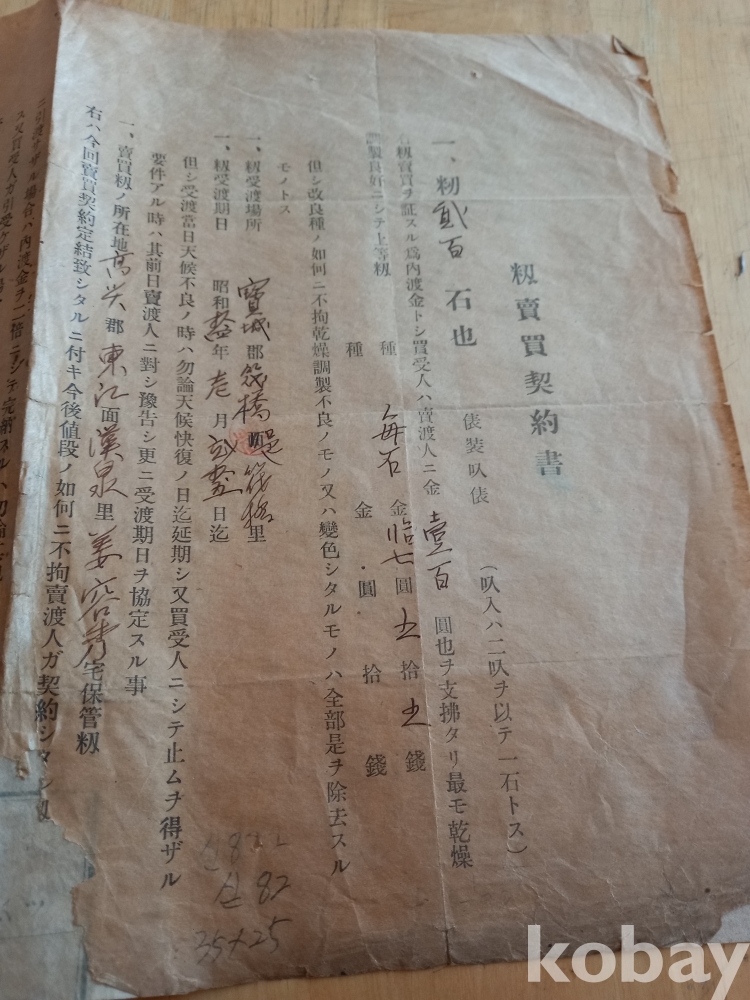 籾賣買契約書
一、籾貳百石也 俵装叺俵 (叺入ハ二叺ヲ以テ一石トス)
籾賣買ヲ証スル爲内渡金トシ買受人ハ賣渡人ニ金壹百圓也ヲ支拂タリ最モ乾燥
調製良好ニシテ上等籾 種 毎石 金拾七圓五拾五錢
種 金 圓 拾 錢
但シ改良種ノ如何ニ不拘乾燥調製不良ノモノ又ハ變色シタルモノハ全部是ヲ除去スル
モノトス
一、籾受渡場所 寶城郡筏橋 筏橋里
一、籾受渡期日 昭和 年 月 日迄
但シ受渡當日天候不良ノ時ハ勿論天候快復ノ日迄延期シ又買受人ニシテ止ムヲ得ザル
要件アル時ハ其前日賣渡人ニ對シ豫告シ更ニ受渡期日ヲ協定スル事
一、賣買籾ノ所在地高兴郡東江面漢泉里姜 秀宅保管籾
右ハ今回賣買契約定結致シタルニ付キ今後値段ノ如何ニ不拘賣渡人ガ契約シタ
ニ引渡サザル場合ハ内渡金ヲ二倍ニシテ完納スルハ勿論
ス又買受人ガ引受ケザル場
82
25+25
kobay